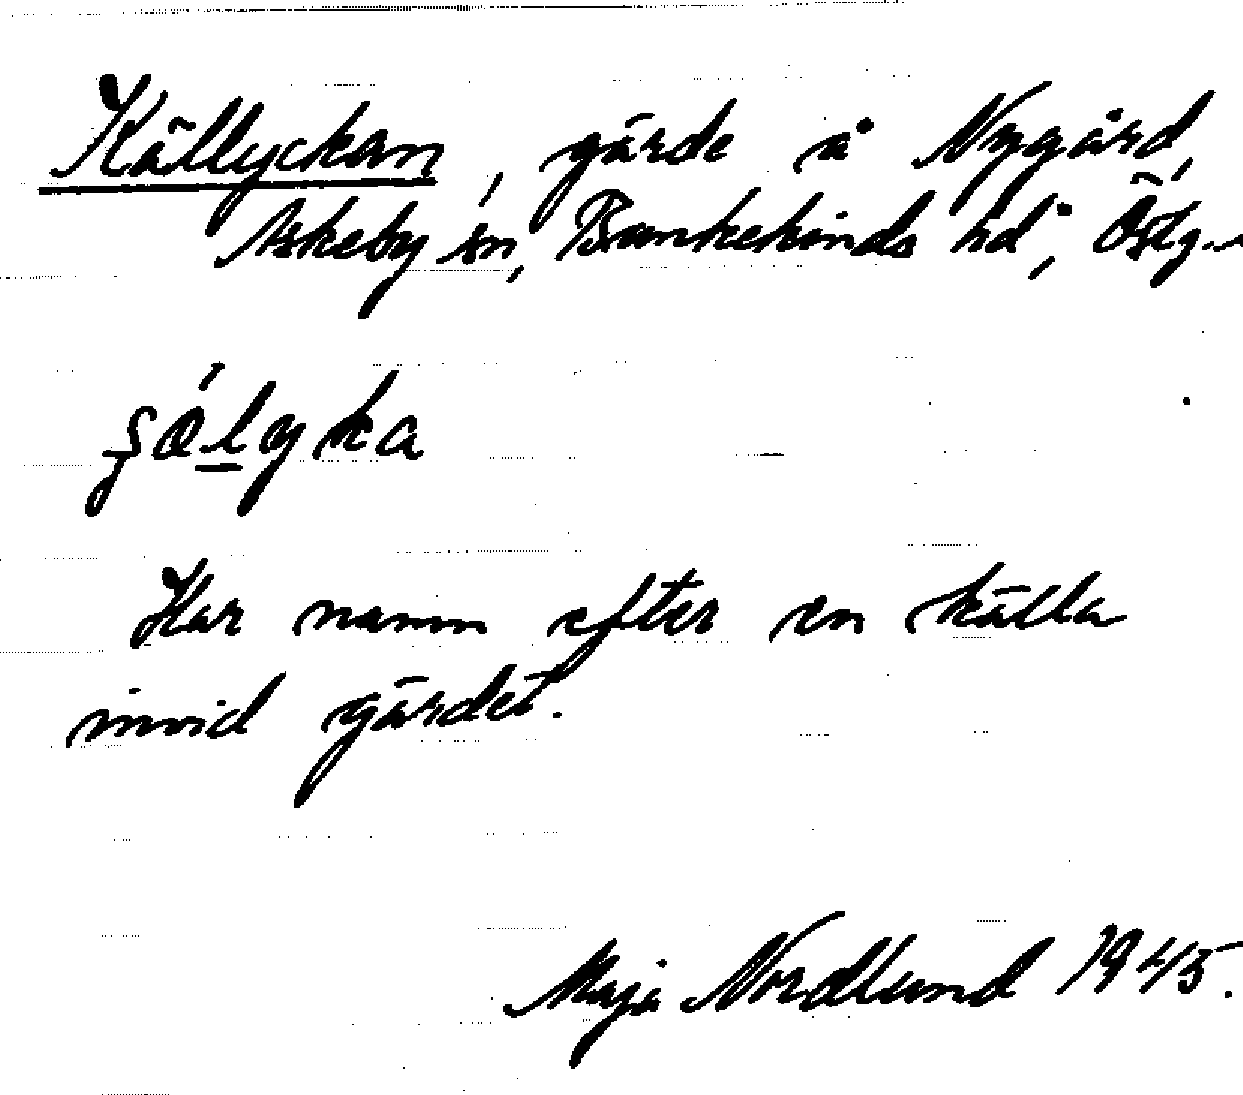 Källyckan, gärde å Nygård,
Askeby sn, Bankekinds hd, Östg.
Har namn efter en källa
invid gärdet.
Maja Nordlund 1945.